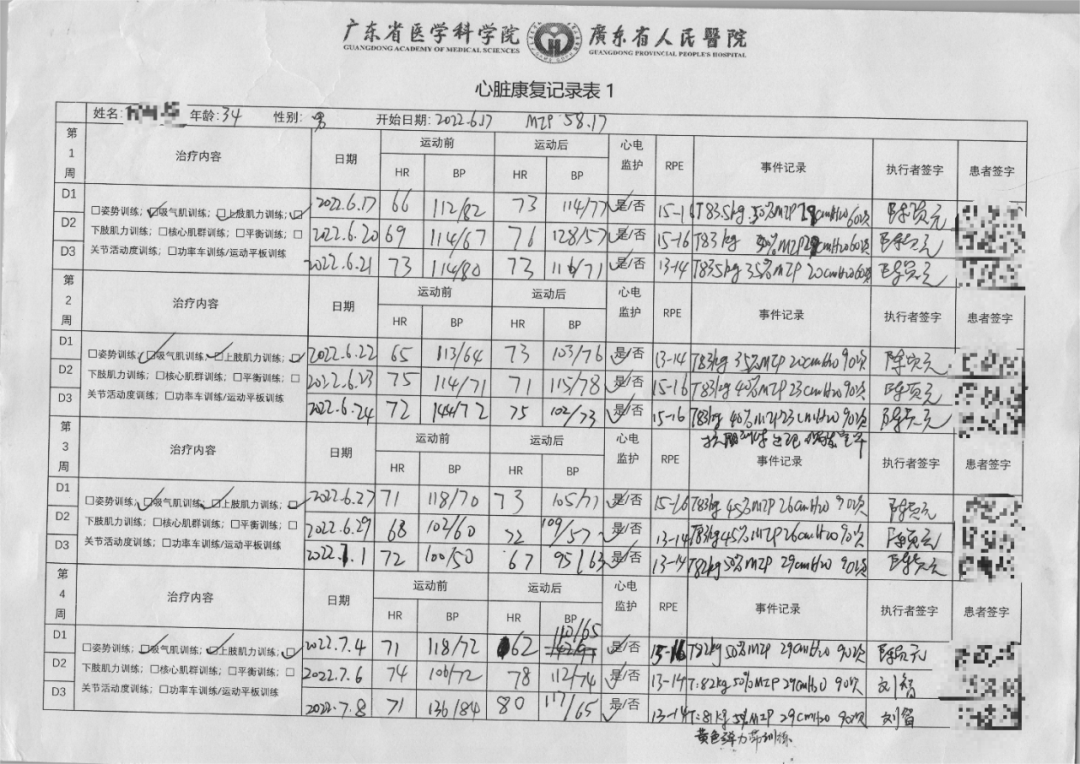 广东省医学科学院 廣东省人民醫院
GUANGDONG ACADEMY OF MEDICAL SCIENCES GUANGDONG PROVINCIAL PEOPLE'S HOSPITAL
心脏康复记录表 1
姓名: 年龄:34 性别: 男 开始日期:2022.6.17 MZP 58.17
第1周 治疗内容 日期 运动前 运动后 心电监护 RPE 事件记录 执行者签字 患者签字
HR BP HR BP
D1 D2 D3
□姿势训练;☑吸气肌训练;☑上肢肌力训练;☑
下肢肌力训练;□核心肌群训练;□平衡训练;□
关节活动度训练;□功率车训练/运动平板训练
2022.6.17 66 112/82 73 114/77 是/否 15-16 T83.5kg 50%MZP 29cmH2O 60次
2022.6.20 69 114/67 76 128/57 是/否 15-16 T83kg 50%MZP 29cmH2O 60次
2022.6.21 73 114/80 73 116/71 是/否 13-14 T83.5kg 35%MZP 20cmH2O 60次
第2周 治疗内容 日期 运动前 运动后 心电监护 RPE 事件记录 执行者签字 患者签字
HR BP HR BP
D1 D2 D3
□姿势训练;☑吸气肌训练;☑上肢肌力训练;☑
下肢肌力训练;□核心肌群训练;□平衡训练;□
关节活动度训练;□功率车训练/运动平板训练
2022.6.22 65 113/64 73 103/76 是/否 13-14 T83kg 35%MZP 20cmH2O 90次
2022.6.23 75 114/71 71 115/78 是/否 15-16 T83kg 40%MZP 23cmH2O 90次
2022.6.24 72 144/72 75 102/73 是/否 15-16 T83kg 40%MZP 23cmH2O 90次
第3周 治疗内容 日期 运动前 运动后 心电监护 RPE 事件记录 执行者签字 患者签字
HR BP HR BP
D1 D2 D3
□姿势训练;☑吸气肌训练;☑上肢肌力训练;☑
下肢肌力训练;□核心肌群训练;□平衡训练;□
关节活动度训练;□功率车训练/运动平板训练
2022.6.27 71 118/70 73 105/71 是/否 15-16 T83kg 45%MZP 26cmH2O 90次
2022.6.29 68 102/60 72 109/57 是/否 13-14 T83kg 45%MZP 26cmH2O 90次
2022.7.1 72 100/50 67 95/63 是/否 13-14 T82kg 50%MZP 29cmH2O 90次
第4周 治疗内容 日期 运动前 运动后 心电监护 RPE 事件记录 执行者签字 患者签字
HR BP HR BP
D1 D2 D3
□姿势训练;☑吸气肌训练;☑上肢肌力训练;☑
下肢肌力训练;□核心肌群训练;□平衡训练;□
关节活动度训练;□功率车训练/运动平板训练
2022.7.4 71 118/72 62 110/65 是/否 15-16 T82kg 50%MZP 29cmH2O 90次
2022.7.6 74 106/72 78 112/74 是/否 13-14 T:82kg 50%MZP 29cmH2O 90次 刘智
2022.7.8 71 136/84 80 117/65 是/否 13-14 T:81kg 50%MZP 29cmH2O 90次 刘智
黄色弹力带训练